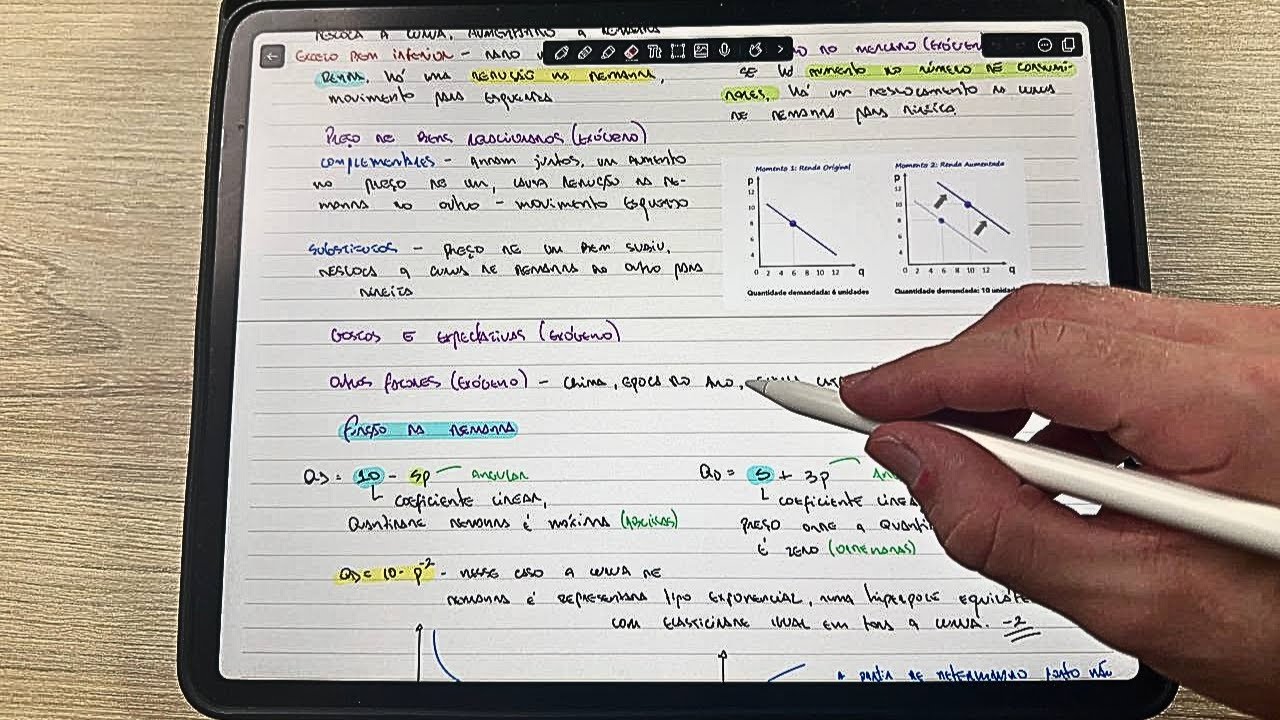 DESLOCA A CURVA, AUMENTANDO A DEMANDA
EXCETO BEM INFERIOR - NADO
RENDA, Há UMA REDUÇÃO NA DEMANDA,
movimento para ESQUERDA
NO MERCADO (EXÓGEN
SE Há AUMENTO NO NÚMERO DE CONSUMI-
DORES, Há UM DESLOCAMENTO NA CURVA
DE DEMANDA PARA DIREITA.
PREÇO DE BENS RELACIONADOS (EXÓGENO)
COMPLEMENTARES - ANDAM juntos, UM AUMENTO
NO PREÇO DE UM, CAUSA REDUÇÃO NA DE-
MANDA DO OUTRO - MOVIMENTO ESQUERDO
SUBSTITUTOS - PREÇO DE UM BEM SUBIU,
DESLOCA A CURVA DE DEMANDA DO OUTRO PARA
DIREITA
Momento 1: Renda Original
P
12
10
8
6
4
0 2 4 6 8 10 12 q
Quantidade demandada: 6 unidades
Momento 2: Renda Aumentada
P
12
10
8
6
4
0 2 4 6 8 10 12 q
Quantidade demandada: 10 unidad
GOSTOS E EXPECTATIVAS (EXÓGENO)
OUTROS FATORES (EXÓGENO) - CLIMA, ÉPOCA DO ANO,
FUNÇÃO DA DEMANDA
QD = 10 - 5p ANGULAR
COEFICIENTE LINEAR,
QUANTIDADE DEMANDA É MÁXIMA (ABCISSAS)
QD = 5 + 3p AN
COEFICIENTE LINEA
PREÇO ONDE A QUANTI
É ZERO (ORDENADAS)
QD = 10 - p-2 - NESSE CASO A CURVA DE
DEMANDA É REPRESENTADA TIPO EXPONENCIAL, NUMA HIPÉRBOLE EQUILÁTE
COM ELASTICIDADE IGUAL EM TODA A CURVA. -2
A PARTIR DE DETERMINADO PONTO NÃO